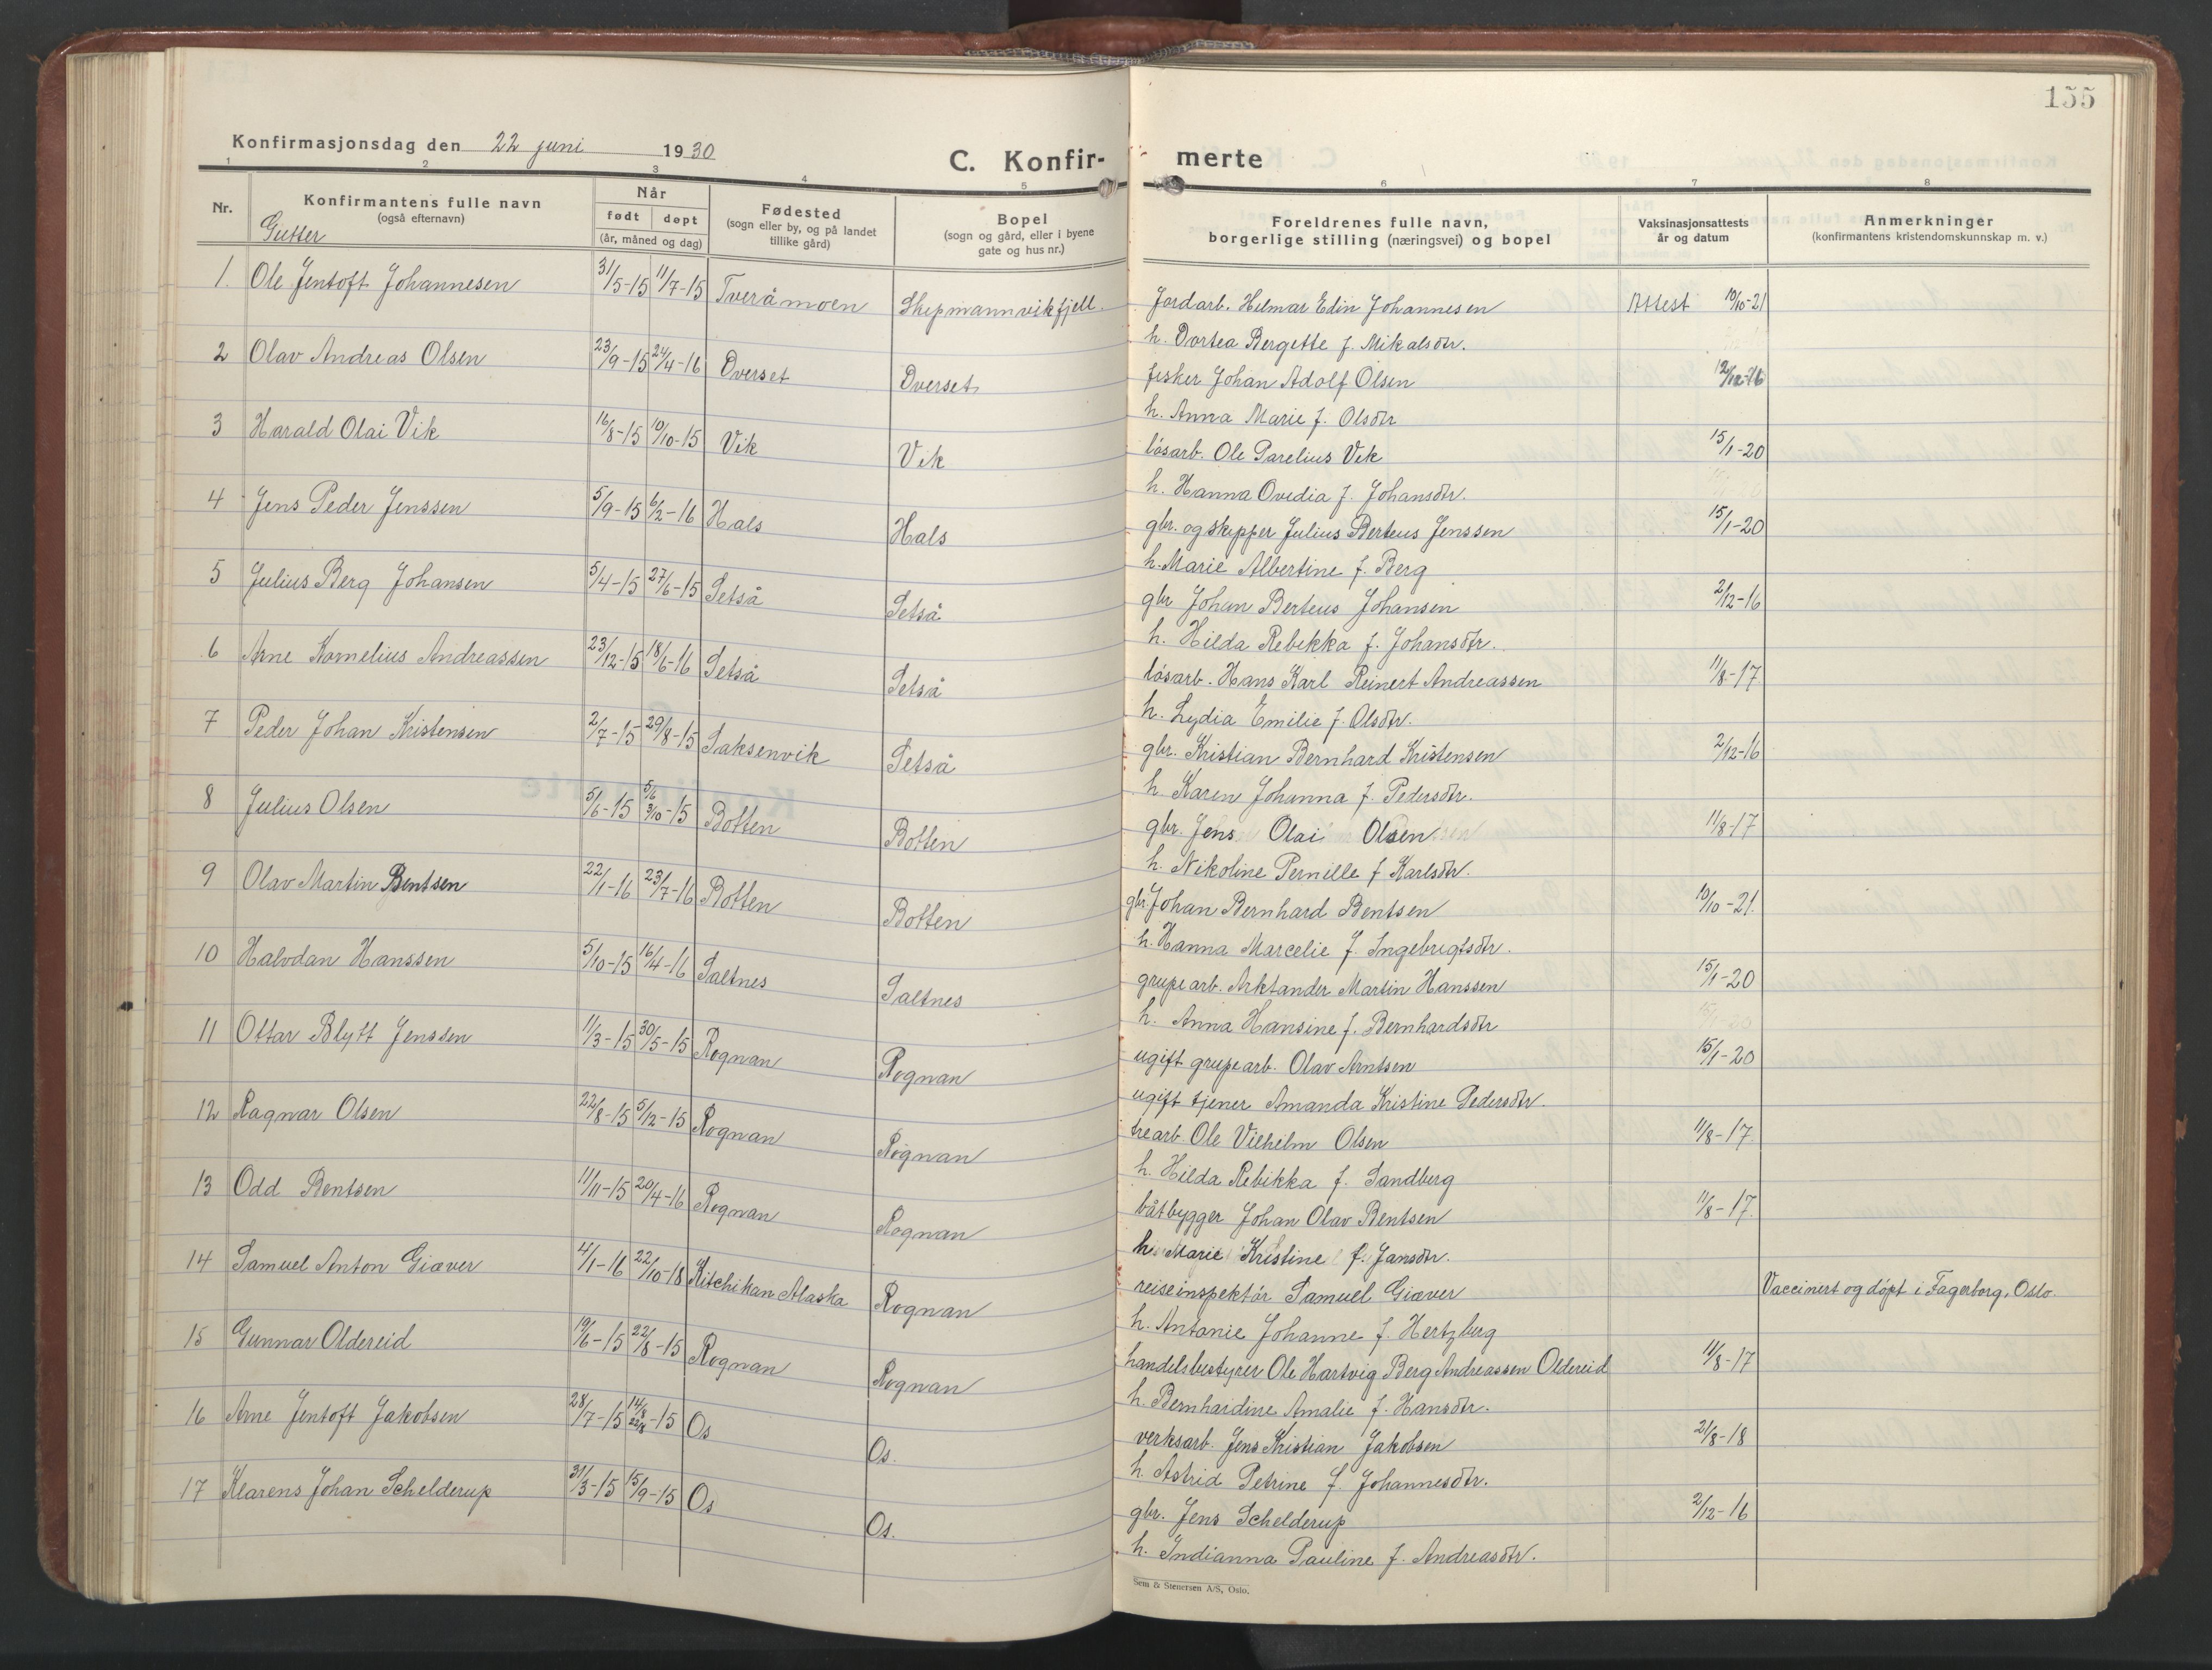 155
Konfirmasjonsdag den 22 juni 1930
C. Konfir- merte
1 2 3 4 5 6 7 8
Nr. Konfirmantens fulle navn (også efternavn) Når født døpt (år, måned og dag) Fødested (sogn eller by, og på landet tillike gård) Bopel (sogn og gård, eller i byene gate og hus nr.) Foreldrenes fulle navn, borgerlige stilling (næringsvei) og bopel Vaksinasjonsattests år og datum Anmerkninger (konfirmantens kristendomskunnskap m. v.)
Gutter
1. Ole Jentoft Johannesen 31/5-15 11/7-15 Tveråmoen Skepmannvikfjell. Jordarb. Helmar Edin Johannesen Attest 10/10-21
h. Dortea Bergette f. Mikalsdtr.
2 Olav Andreas Olsen 23/9-15 24/4-16 Överset Överset fisker Johan Adolf Olsen 12/12-16
h. Anna Marie f. Olsdtr
3 Harald Olai Vik 16/8-15 10/10-15 Vik Vik løsarb. Ole Parelius Vik 15/1-20
h. Hanna Ovedia f. Johansdtr.
4 Jens Peder Jenssen 5/9-15 6/2-16 Hals Hals gbr. og skipper Julius Berteus Jenssen 15/1-20
h. Marie Albertine f. Berg
5 Julius Berg Johansen 5/4-15 27/6-15 Setså Setså gbr Johan Berteus Johansen 2/12-16
h. Hilda Rebekka f. Johansdtr.
6 Arne Kornelius Andreassen 23/12-15 18/6-16 Setså Setså løsarb. Hans Karl Reinert Andreassen 11/8-17
h. Lydia Emilie f. Olsdtr.
7 Peder Johan Kristensen 2/7-15 29/8-15 Saksenvik Setså gbr. Kristian Bernhard Kristensen 2/12-16
h. Karen Johanna f. Pedersdtr.
8 Julius Olsen 5/6-15 5/6 3/10-15 Botten Botten gbr. Jens Olai Olsen 11/8-17
h. Nikoline Pernille f Karlsdtr.
9 Olav Martin Bentsen 22/1-16 23/7-16 Botten Botten gbr. Johan Bernhard Bentsen 10/10-21.
h. Hanna Marcelie f. Ingebrigtsdtr.
10 Halvdan Hanssen 5/10-15 16/4-16 Saltnes Saltnes grupearb. Arktander Martin Hanssen 15/1-20
h. Anna Hansine f. Bernhardsdtr
11 Ottar Blytt Jenssen 11/3-15 30/5-15 Rognan Rognan ugift grupearb. Olav Arntsen 15/1-20
ugift tjener Amanda Kristine Pedersdtr.
12 Ragnar Olsen 22/8-15 5/12-15 Rognan Rognan trearb. Ole Vilhelm Olsen 11/8-17
h. Hilda Rebikka f. Sandberg
13 Odd Bentsen 11/11-15 20/4-16 Rognan Rognan båtbygger Johan Olav Bentsen 11/8-17.
h. Marie Kristine f. Jansdtr.
14 Samuel Anton Giæver 4/1-16 22/10-18 Kitchikan Alaska Rognan reiseinspektør Samuel Giæver Vaccinert og døpt i Fagerborg, Oslo.
h. Antanie Johanne f. Hertzberg
15 Gunnar Oldereid 19/6-15 22/8-15 Rognan Rognan handelsbestyrer Ole Hartvig Berg Andreassen Oldereid 11/8-17
h. Bernhardine Amalie f. Hansdtr.
16 Arne Jentoft Jakobsen 28/7-15 14/8 22/8-15 Os Os. verksarb. Jens Kristian Jakobsen 21/8-18
h. Astrid Petrine f. Johannesdtr.
17 Klarens Johan Schelderup 31/3-15 15/9-15 Os Os. gbr. Jens Schelderup 2/12-16
h. Indianna Pauline f. Andreasdtr.
Sem & Stenersen A/S, Oslo.